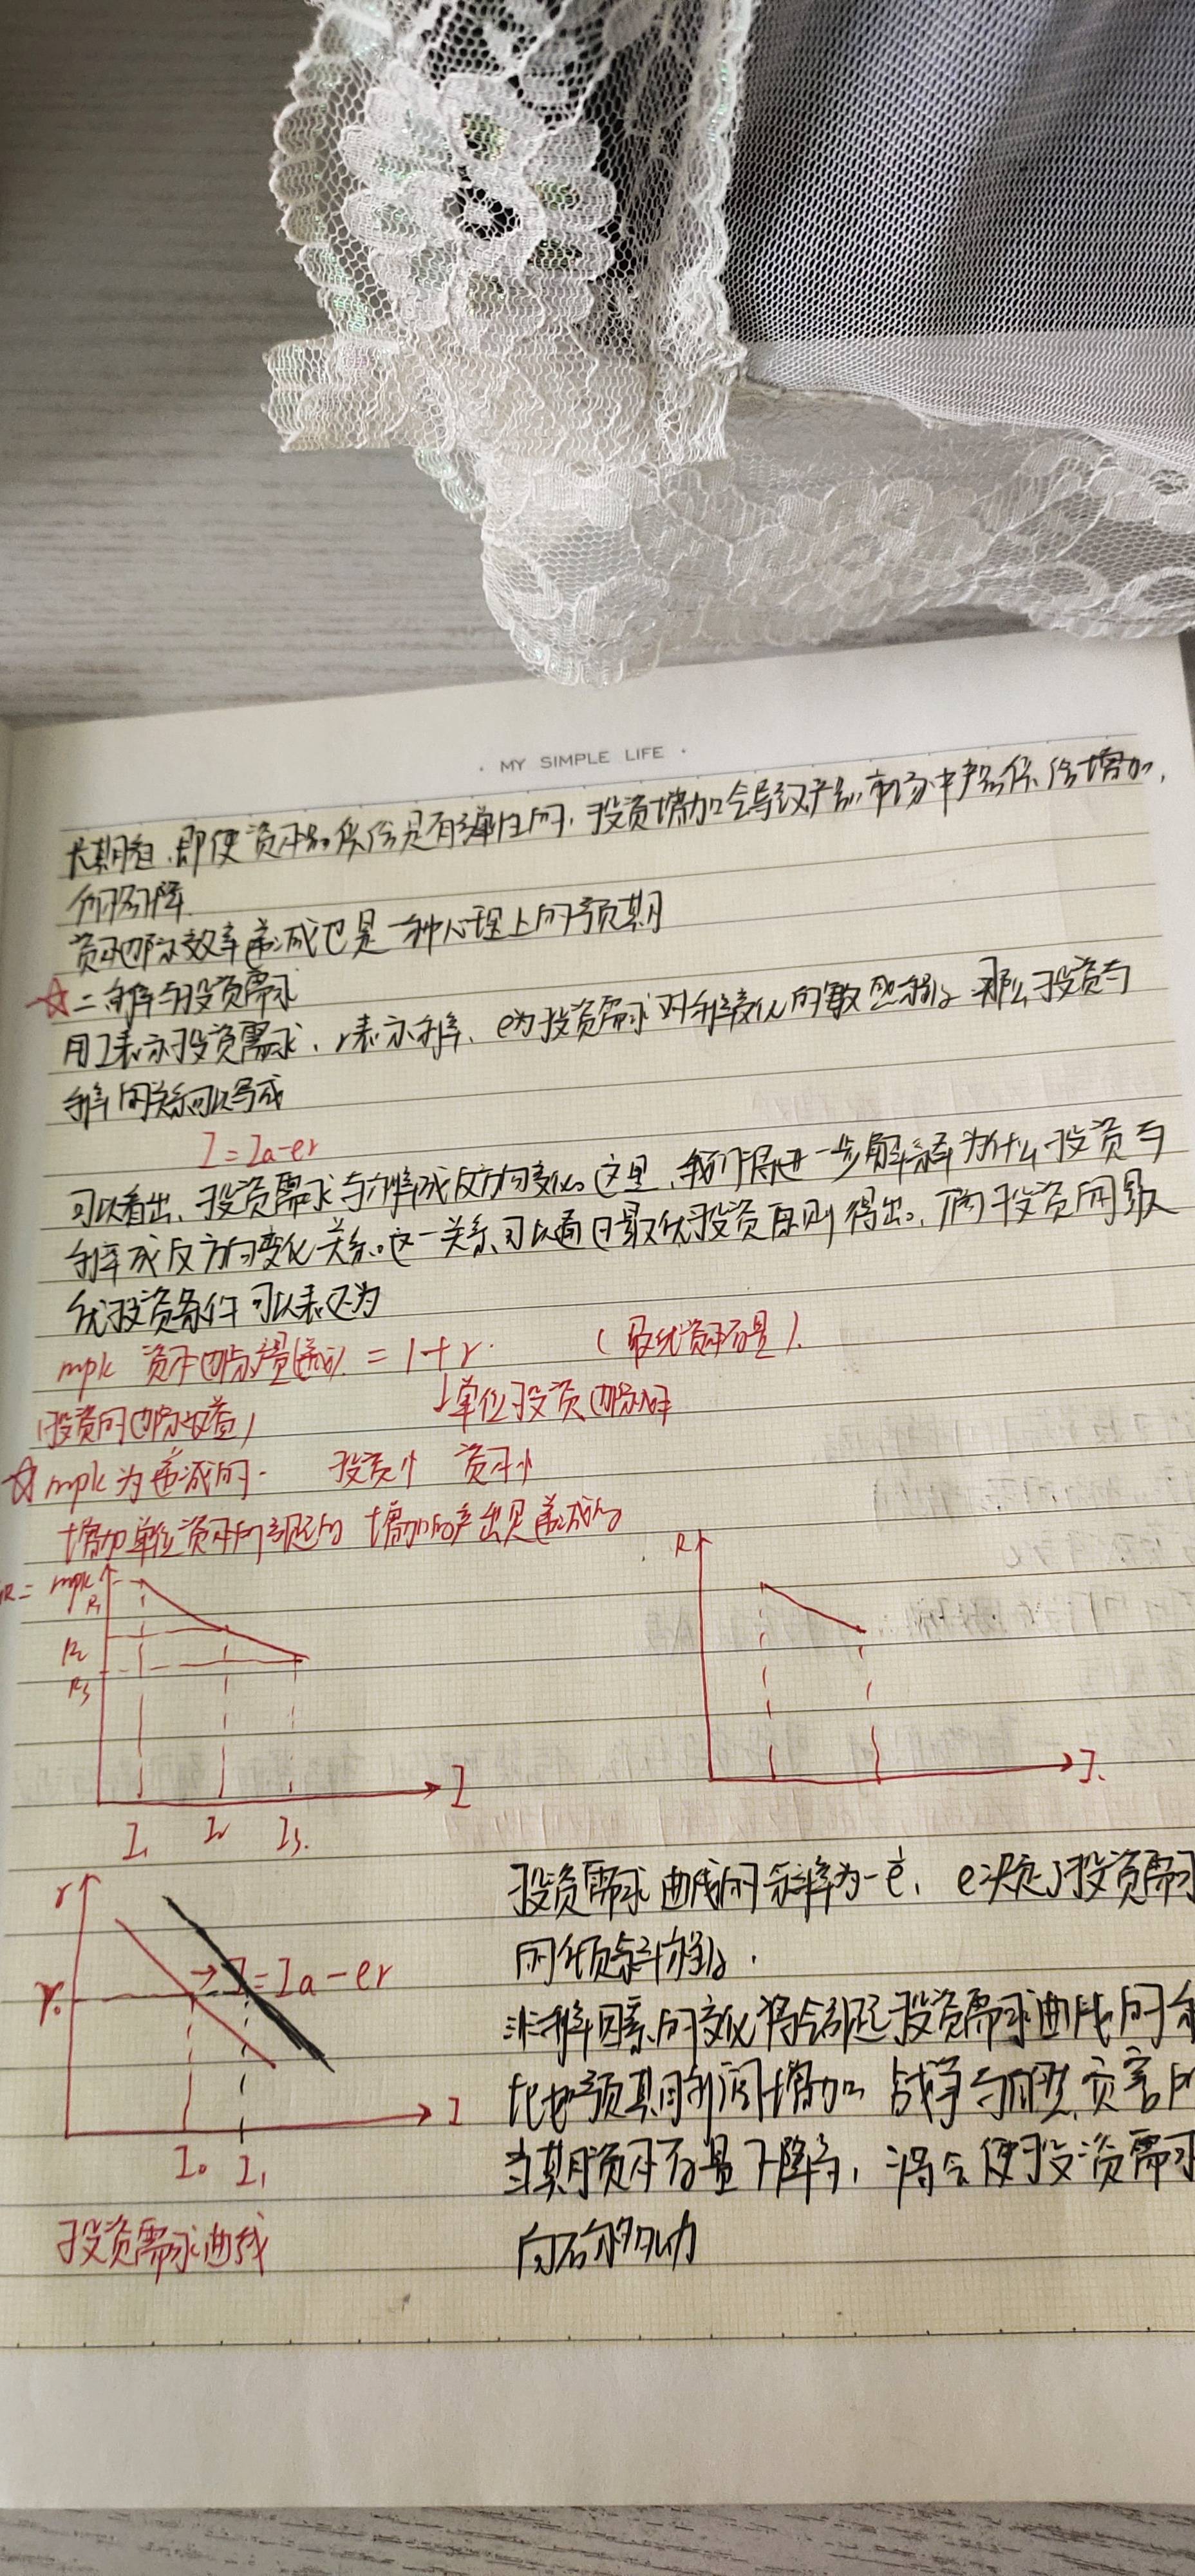 · MY SIMPLE LIFE ·
长期看,即使资本品供给是有弹性的,投资增加会导致产品市场中产品供给增加,
价格下降
资本边际效率递减也是一种心理上的预期
☆二利率与投资需求
用I表示投资需求,r表示利率,e为投资需求对利率变化的敏感程度 那么投资与
利率的关系可以写成
I=Ia-er
可以看出,投资需求与利率成反方向变化。这里,我们将进一步解释为什么投资与
利率成反方向变化关系。这一关系可以通过最优投资原则得出。厂商投资的最
优投资条件可以表述为
mpk 资本边际产量(递减) = 1+r. (最优资本存量).
(投资的边际收益) ↓单位投资边际成本
☆mpk为递减的. 投资↑ 资本↑
增加单位资本所引起的增加的产出是递减的
R= mpk
R₁
R₂
R₃
I
I₁ I₂ I₃.
R
I.
r
r₀
→I=Ia-er
I
I₀ I₁
投资需求曲线
投资需求曲线的斜率为-1/e, e决定了投资需求
的倾斜程度.
非利率因素的变化将会引起投资需求曲线的
比如预期利润增加 战争与
当期资本存量下降等,将会使投资需求
向右移动